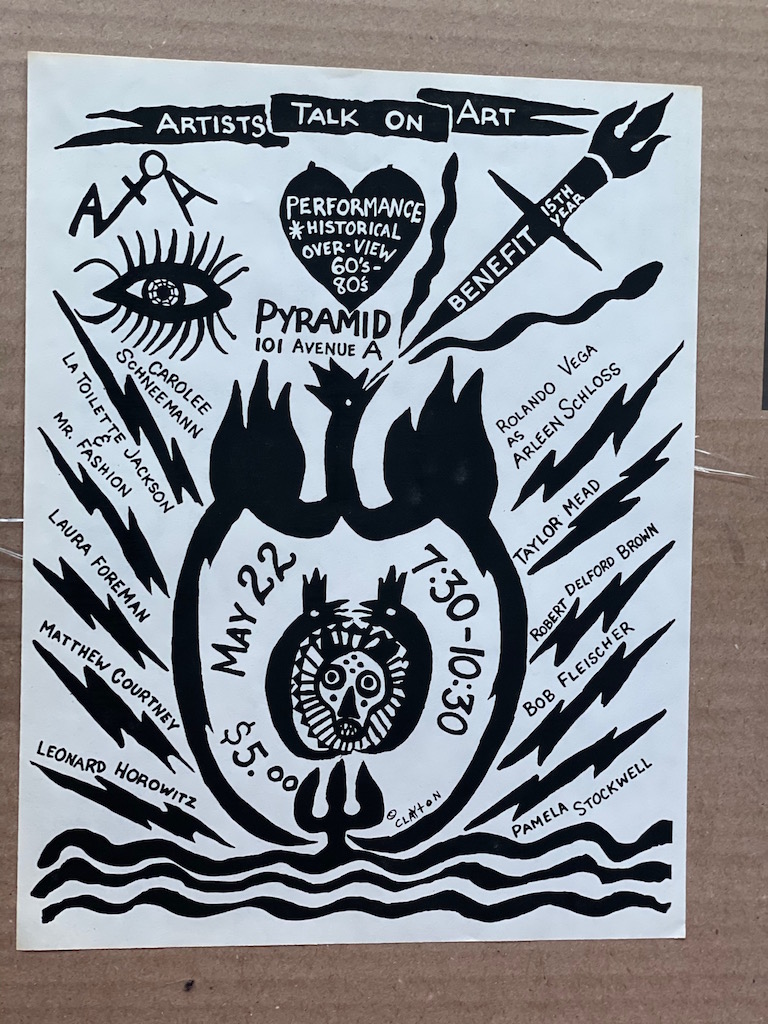 ARTISTS TALK ON ART
ATOA
PERFORMANCE
*HISTORICAL
OVER-VIEW
60's-
80's
BENEFIT 15TH
YEAR
PYRAMID
101 AVENUE A
CAROLEE
SCHNEEMANN
LA TOILETTE JACKSON
&
MR. FASHION
LAURA FOREMAN
MATTHEW COURTNEY
LEONARD HOROWITZ
ROLANDO VEGA
AS
ARLEEN SCHLOSS
TAYLOR MEAD
ROBERT DELFORD BROWN
BOB FLEISCHER
PAMELA STOCKWELL
MAY 22
7:30-10:30
$5.00
© CLAYTON